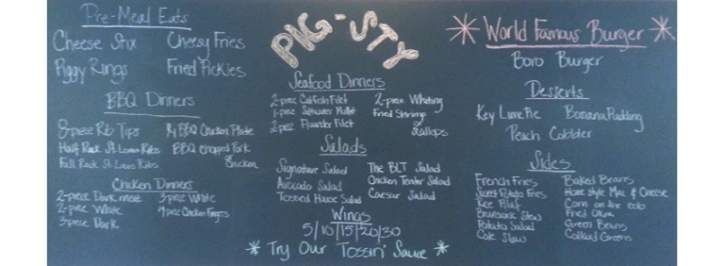 Pre-Meal Eats
Cheese Stix
Cheesy Fries
Piggy Rings
Fried Pickles
BBQ Dinners
3-piece Rib Tips
1/4 BBQ Chicken Plate
Half Rack St. Louis Ribs
BBQ Chopped Pork
Full Rack St. Louis Ribs
Chicken
Chicken Dinners
2-piece Dark meat
3-piece White
2-piece White
4 piece Chicken Fingers
3-piece Dark
PIG-STY
Seafood Dinners
2-piece Catfish Filet
2-piece Whiting
1-piece Mullet
Fried Shrimp
2-piece Flounder Filet
Scallops
Salads
Signature Salad
The BLT Salad
Avocado Salad
Chicken Tender Salad
Tossed House Salad
Caesar Salad
Wings
5/10/15/20/30
* Try Our Tossin' Sauce *
* World Famous Burger *
Boro Burger
Desserts
Key Lime Pie
Banana Pudding
Peach Cobbler
Sides
French Fries
Baked Beans
Sweet Potato Fries
Home style Mac & Cheese
Rice Pilaf
Corn on the cob
Brunswick Stew
Fried Okra
Potato Salad
Green Beans
Cole Slaw
Collard Greens